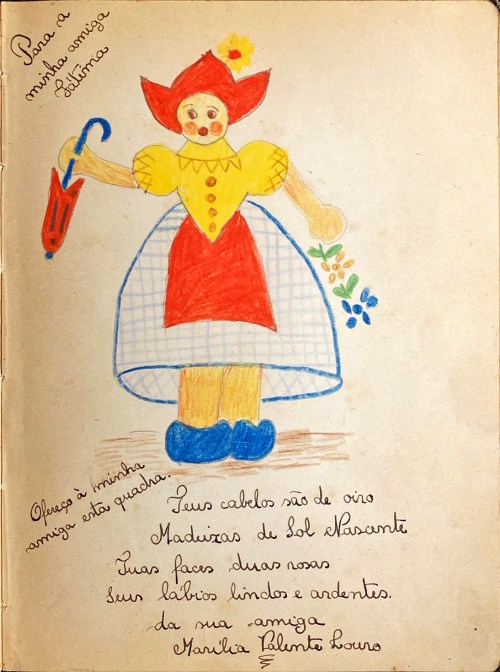 Para a
minha amiga
Fátima
Ofereço à minha
amiga esta quadra.
Teus cabelos são de oiro
Madeixas de Sol Nascente
Tuas faces duas rosas
Seus lábios lindos e ardentes.
da sua amiga
Marília Valente Louro